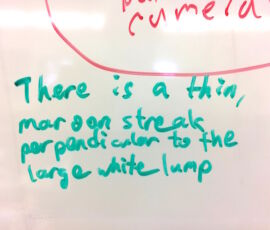 camera
There is a thin,
maroon streak
perpendicular to the
large white lump